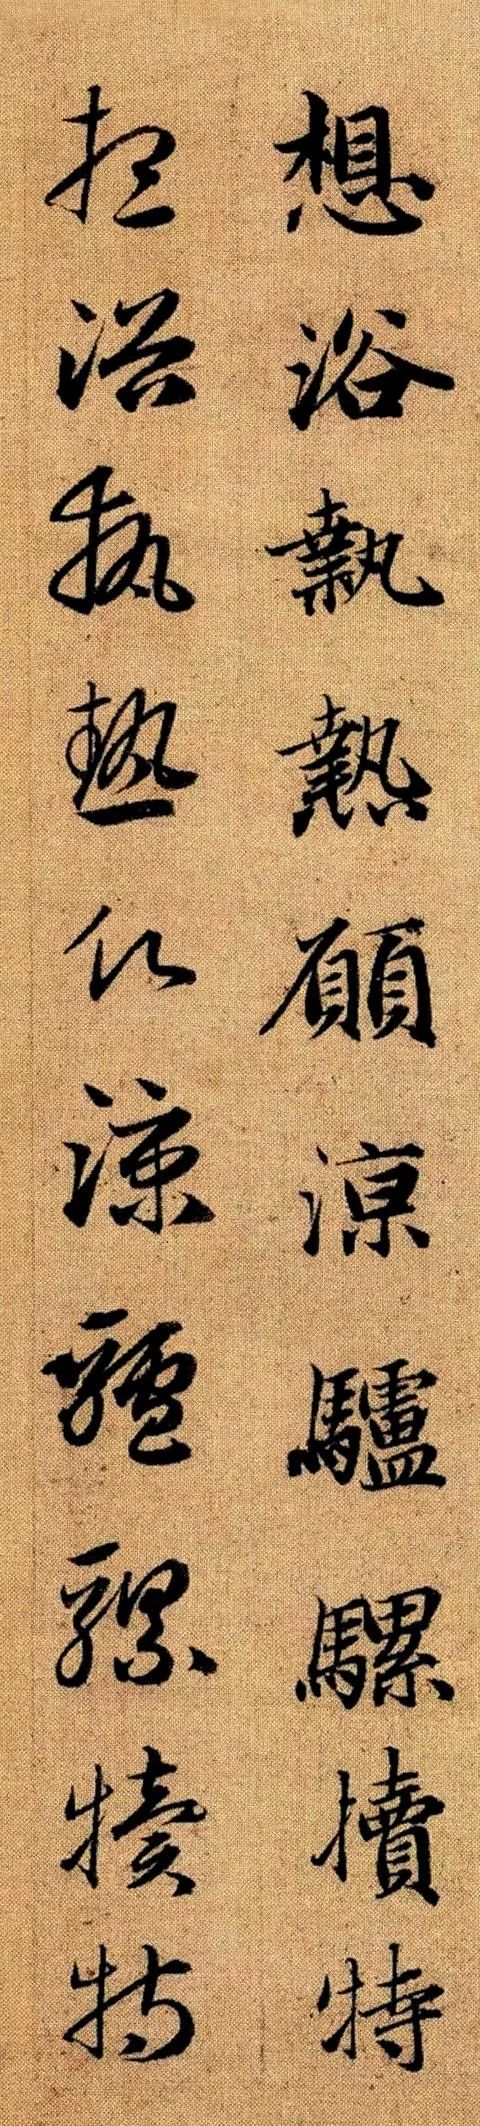 想浴執熱願涼驢騾犢特
想浴執熱願涼驢騾犢特